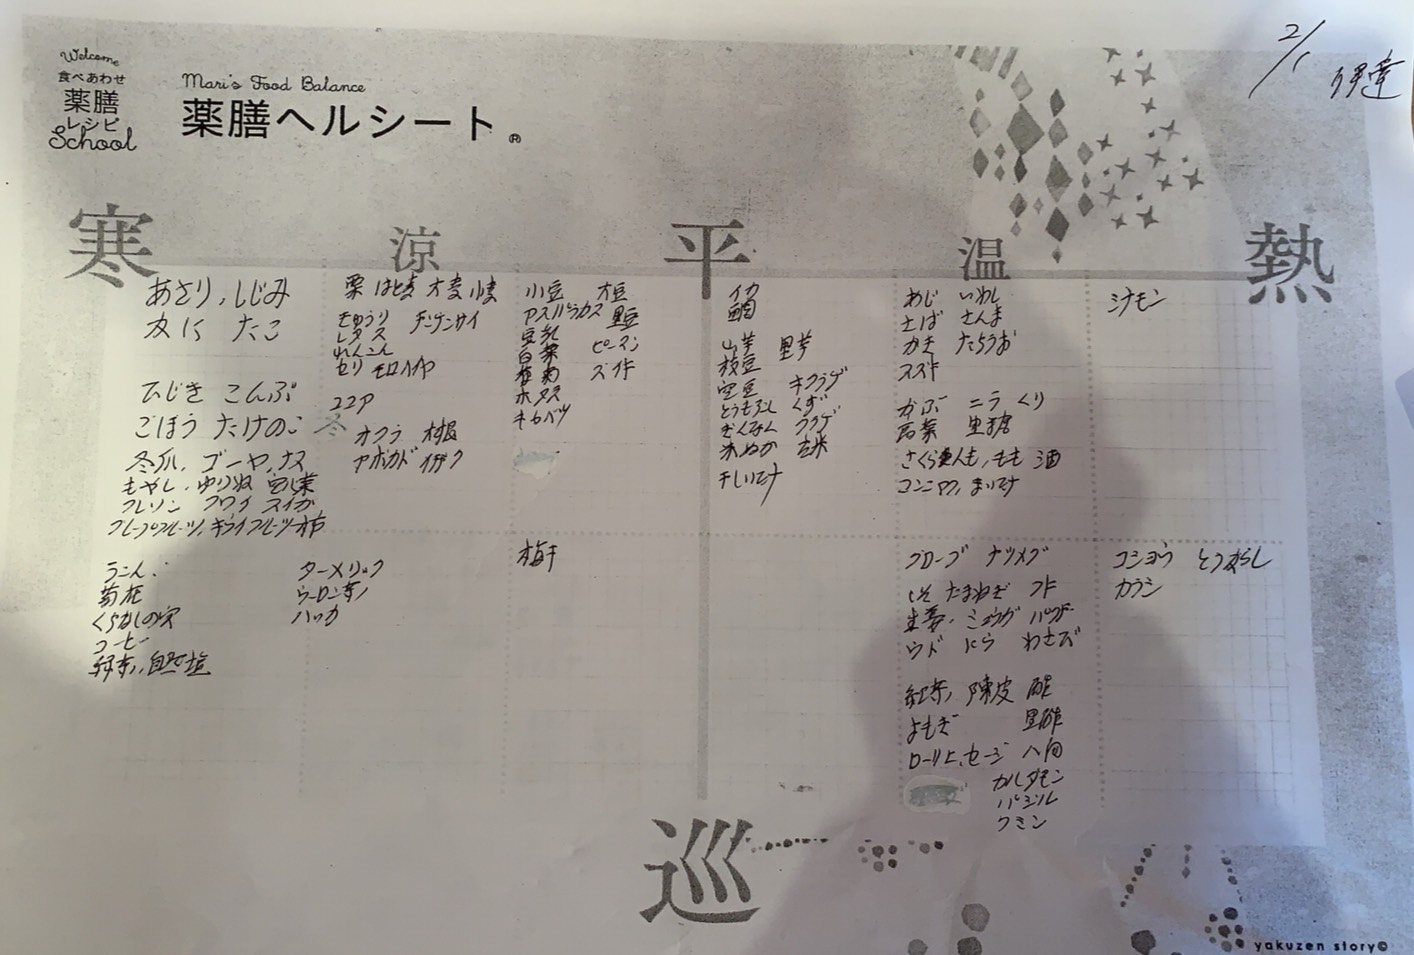 2/1 伊達
Welcome
食べあわせ
薬膳
レシピ
School
Mari's Food Balance
薬膳ヘルシート®
寒
涼
平
温
熱
あさり、しじみ
かに たこ
ひじき こんぶ
ごぼう たけのこ
冬瓜、ゴーヤ、ナス
もやし、ゆりね
クレソン クワイ スイカ
グレープフルーツ、キウイフルーツ 柿
うこん
菊花
くちなしの実
コーヒー
緑茶、自然塩
粟 はと麦 大麦 小麦
きゅうり チンゲンサイ
レタス
れんこん
セリ モロヘイヤ
ココア
冬
オクラ
アボカド イチヂク
ターメリック
ウーロン茶
ハッカ
小豆 大豆
アスパラガス 黒豆
豆乳
白菜 ピーマン
春菊
ホタテ
キャベツ
梅干
イカ
鯛
山芋 里芋
枝豆
空豆 キクラゲ
とうもろこし くず
ぎんなん クラゲ
米ぬか 玄米
干しいたけ
あじ いわし
さば さんま
かき たちうお
スズキ
かぶ ニラ くり
高菜 黒糖
さくらんぼ、もも 酒
コンニャク、まいたけ
クローブ ナツメグ
しそ たまねぎ フキ
生姜、ミョウガ パクチー
ウド にら わさび
紅茶、陳皮 酢
よもぎ 黒酢
ローリエ、セージ 八角
カルダモン
バジル
クミン
シナモン
コショウ とうがらし
カラシ
巡
yakuzen story©